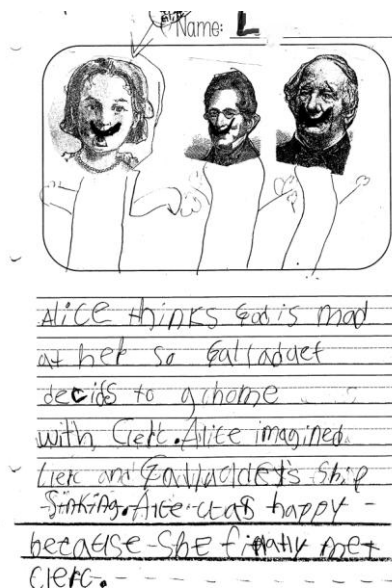 Name: L
ALiCE thinks God is mad
at her so Galladuet
decids to g home
with Clerc. Alice imagined
Clerc and Galluadets Ship
Sinking. Alice was happy
because She finally met
Clerc.